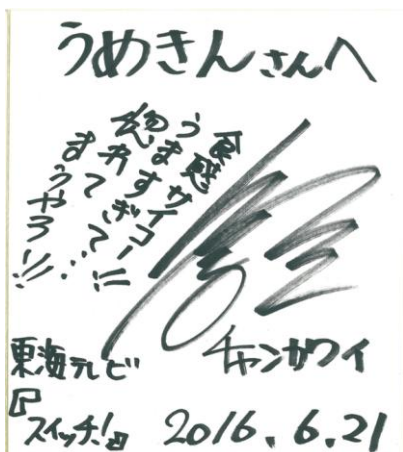 うめきんさんへ
食感サイコー!!
うますぎて…
惚れて
まうやろ!!
チャンカワイ
東海テレビ
『スイッチ!』
2016.6.21